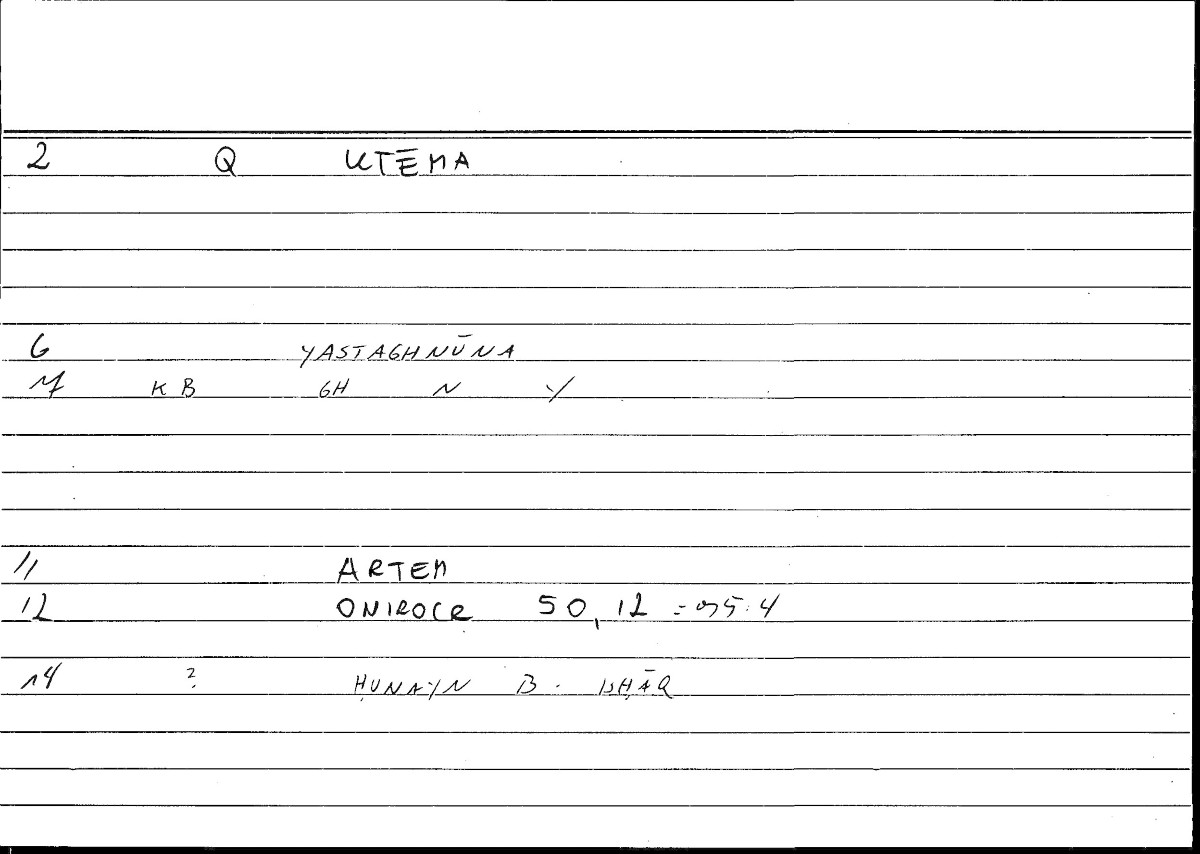 2 Q KTĒMA
6 YASTAGHNŪNA
7 KB GH N Y
11 ARTEM
12 ONIROCR 50,12 = 95.4
14 ? ḤUNAYN B. ISḤĀQ